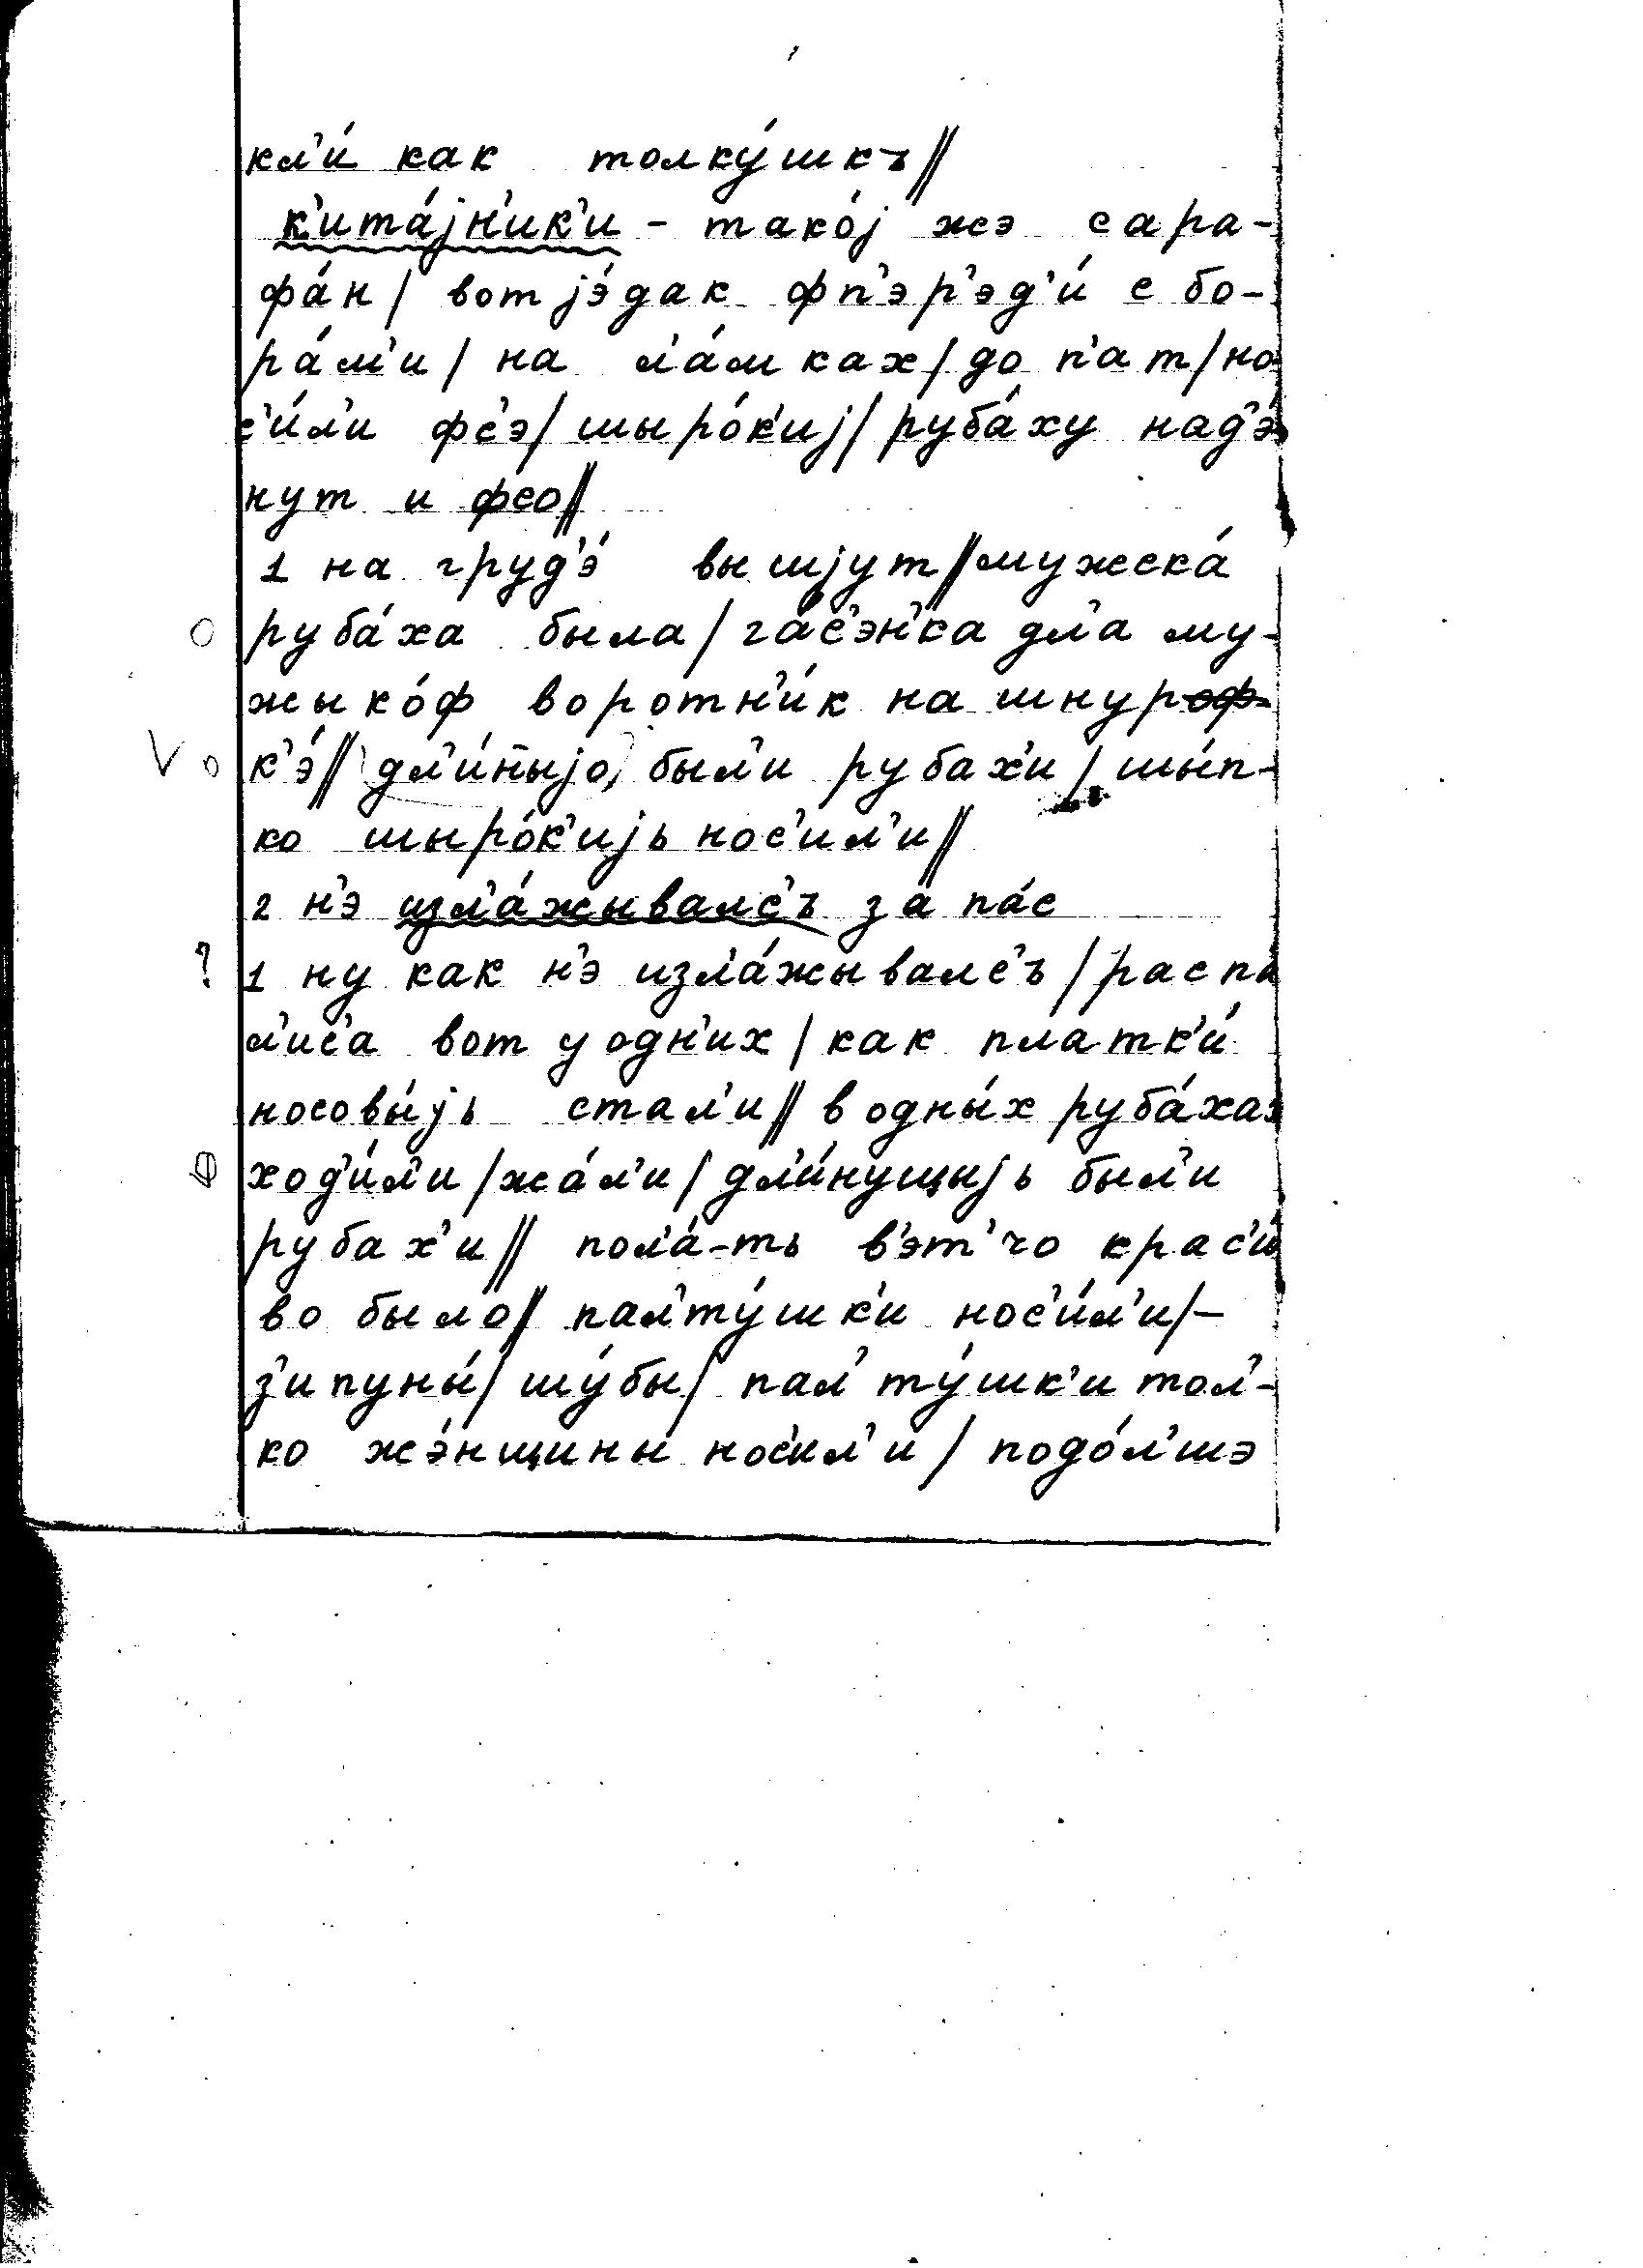 кл'и́ как толку́шкъ//
к'ита́jн'ик'и - тако́j жэ сара-
фа́н/ вот jэ́дак фп'эр'эд'и́ с бо-
ра́м'и/ на л'а́мках/ до п'ат/ но
с'и́л'и фс'э/ шыро́к'иj/ руба́ху над'э́
нут и фсо//
1 на груд'э́ вышjут// мужска́
руба́ха была/ га́с'эн'ка дл'а му-
жыко́ф воротн'и́к на шнуроф
к'э́// дл'и́н̄ыjо, был'и рубах'и/ шы́п-
ко шыро́к'иjь нос'ил'и//
2 н'э изла́жывалс'ъ за па́с
1 ну как н'э изла́жывалс'ъ/ распа
л'ис'а вот у одн'их/ как платк'и́
носовы́jь стал'и// в одны́х руба́хах
ход'и́л'и/ жа́л'и/ дл'и́нущыjь был'и
рубах'и// пол'а́-ть в'эт'чо крас'и́
во было// пал'ту́шк'и нос'и́л'и/-
з'ипуны́/ шу́бы/ пал'ту́шк'и тол'-
ко жэ́нщины нос'ил'и/ подо́л'шэ